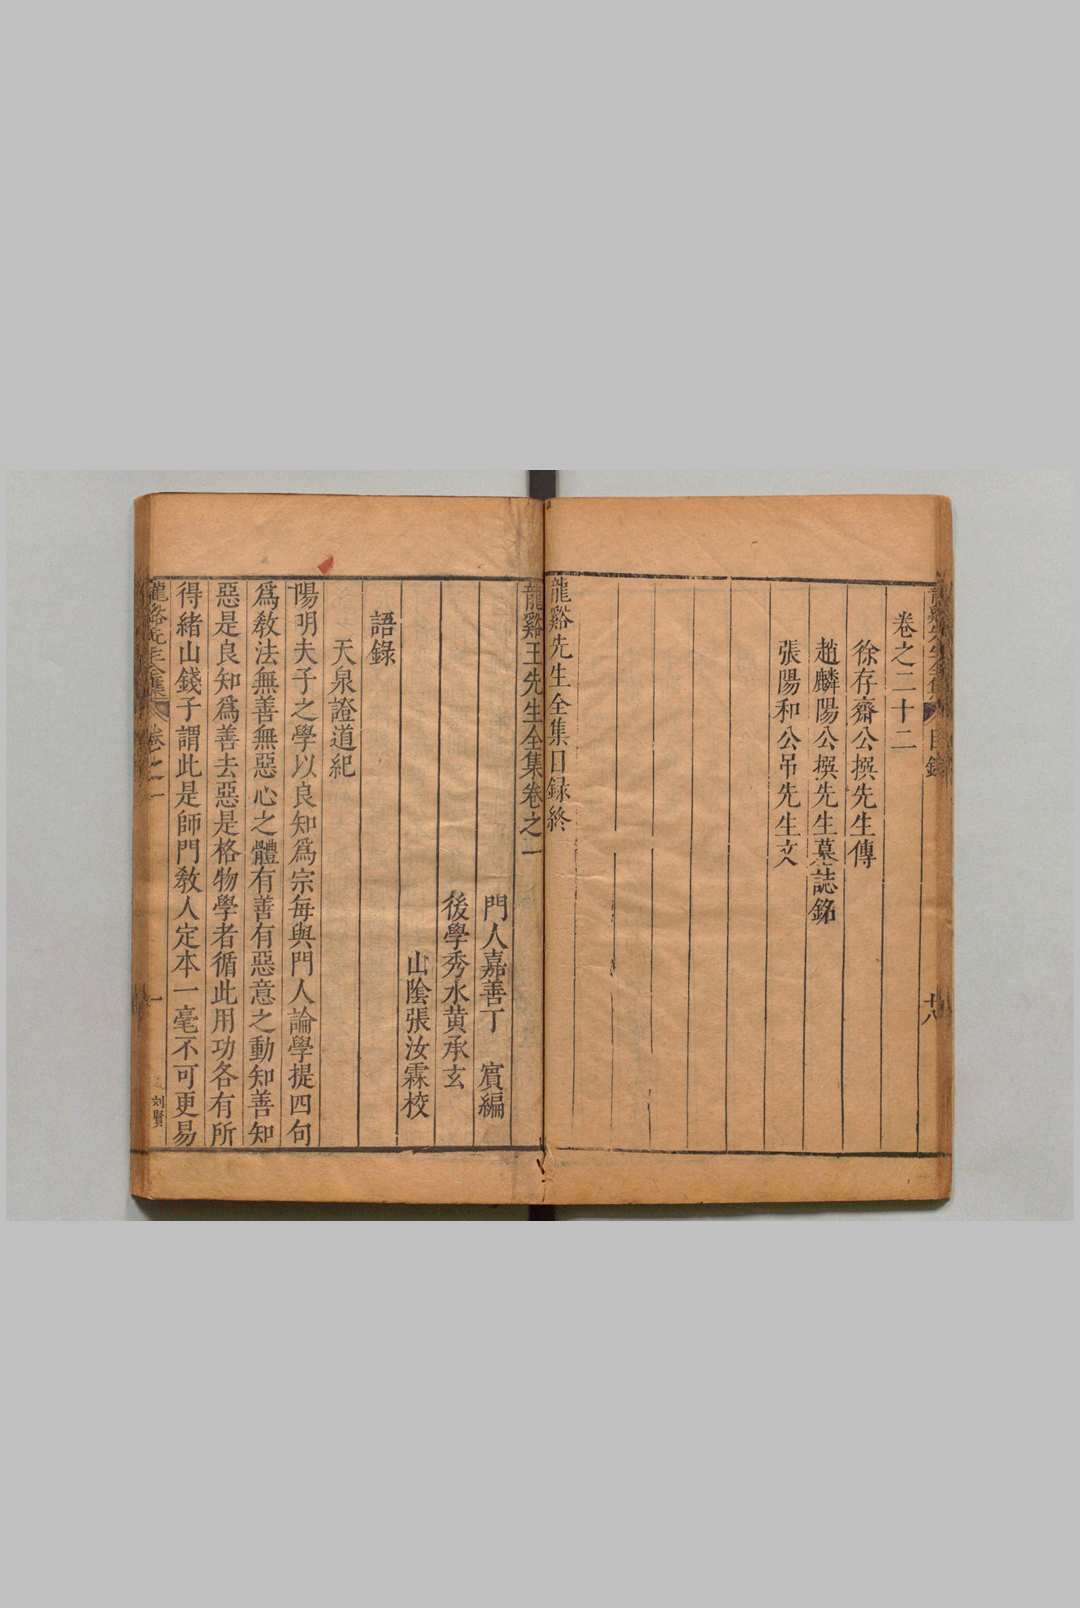 卷之二十二
徐存齋公撰先生傳
趙麟陽公撰先生墓誌銘
張陽和公吊先生文
龍谿先生全集目録終
龍谿王先生全集卷之一
門人嘉善丁　賓編
後學秀水黄承玄
山隂張汝霖校
語錄
天泉證道紀
陽明夫子之學以良知爲宗每與門人論學提四句
爲敎法無善無惡心之體有善有惡意之動知善知
惡是良知爲善去惡是格物學者循此用功各有所
得緒山錢子謂此是師門敎人定本一毫不可更易
龍谿先生全集 卷之一 一
刘賢